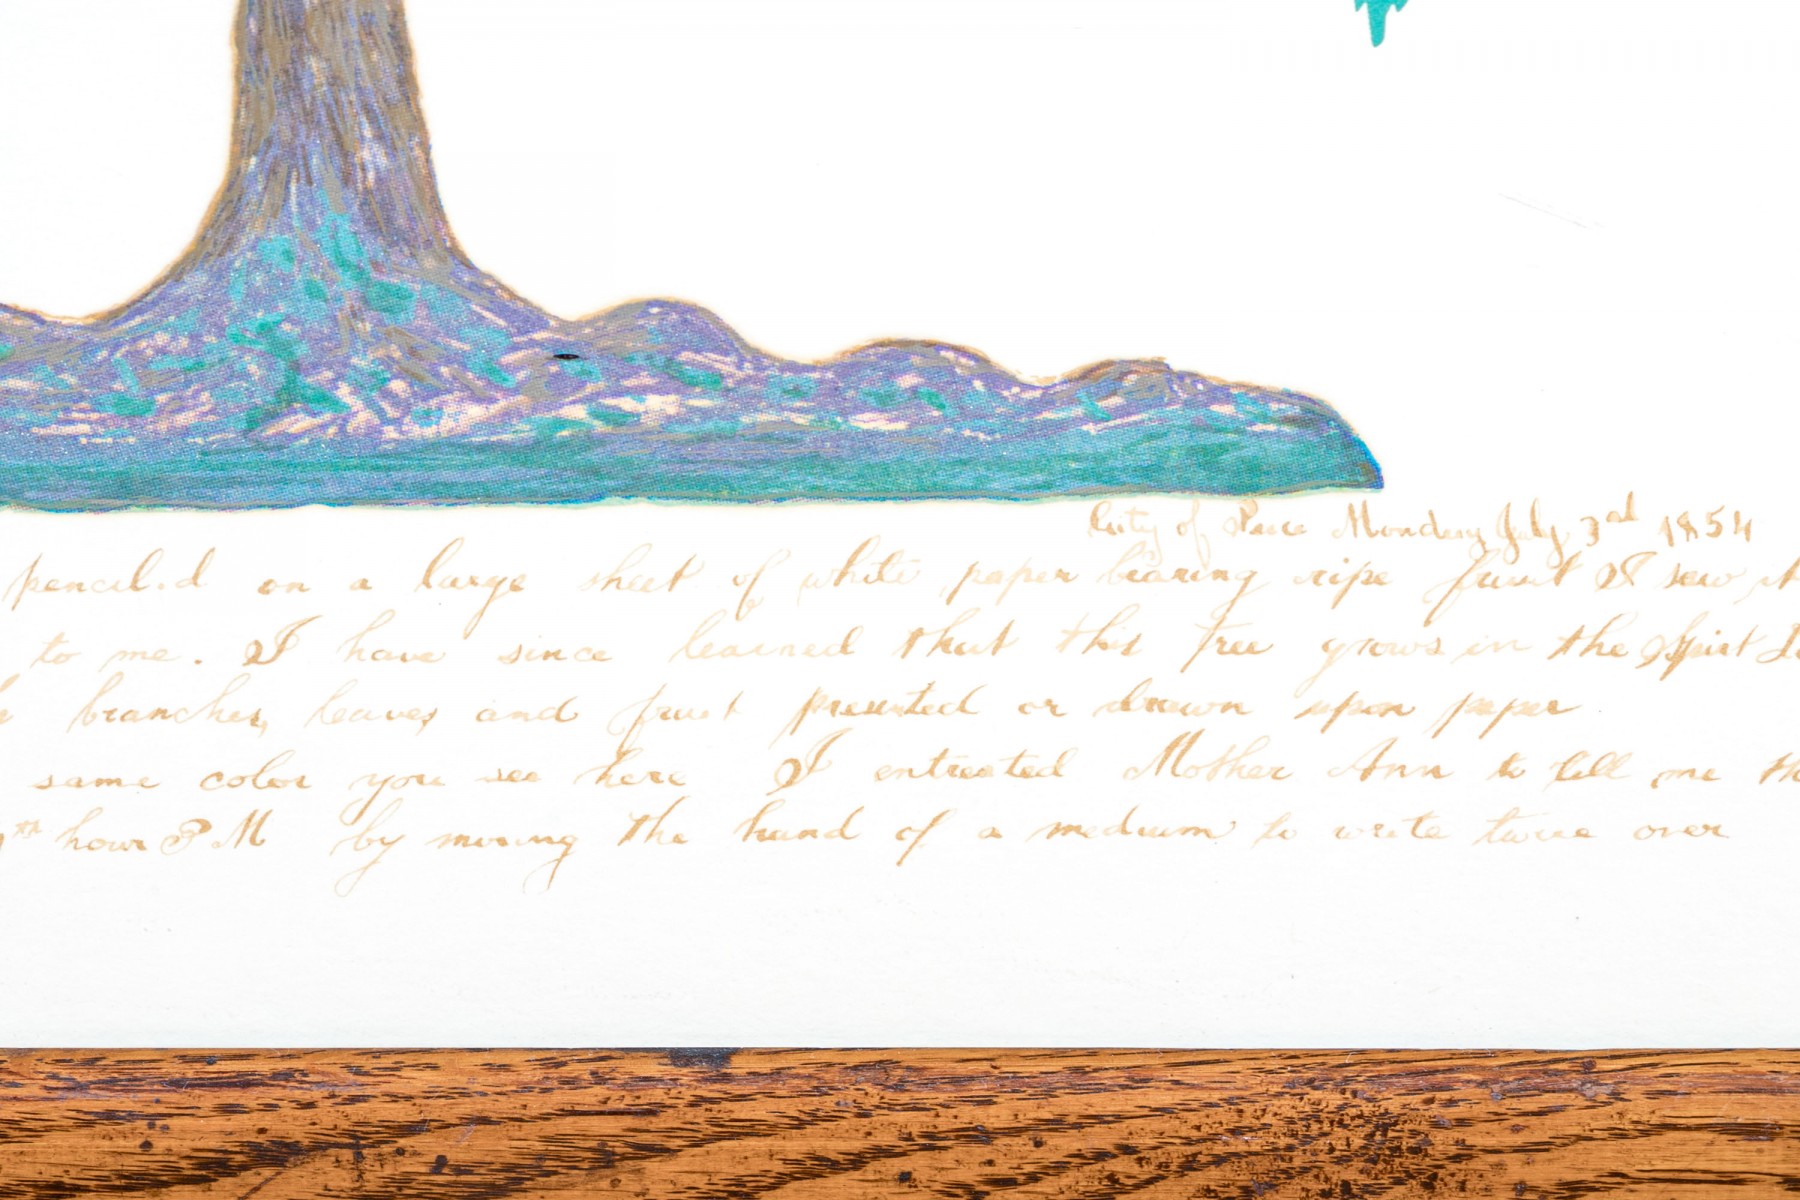 City of Peace Monday July 3rd 1854
pencil.d on a large sheet of white paper bearing ripe fruit I saw it
to me. I have since learned that this Tree grows in the Spirit
branches, leaves and fruit presented or drawn upon paper
same color you see here I entreated Mother Ann to tell me
hour P.M by moving the hand of a medium to write twice over